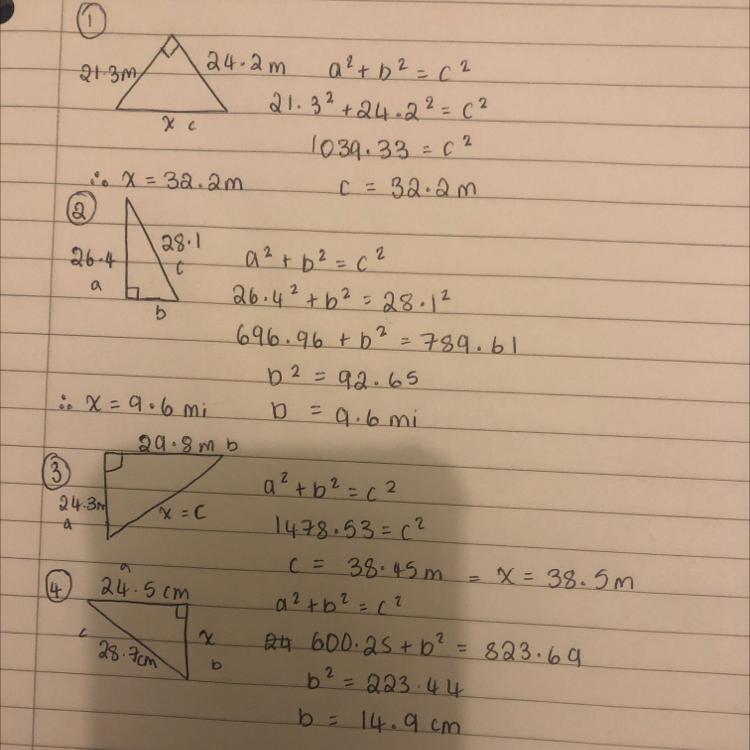 ①
21.3m 24.2m a² + b² = c²
21.3² + 24.2² = c²
x c
1039.33 = c²
∴ x = 32.2m c = 32.2m
②
28.1
26.4 c a² + b² = c²
a 26.4² + b² = 28.1²
b
696.96 + b² = 789.61
b² = 92.65
∴ x = 9.6 mi b = 9.6 mi
29.8m b
③
24.3m a² + b² = c²
a x = c 1478.53 = c²
c = 38.45m = x = 38.5m
a
④ 24.5cm a² + b² = c²
c x 24 600.25 + b² = 823.69
28.7cm b
b² = 223.44
b = 14.9 cm